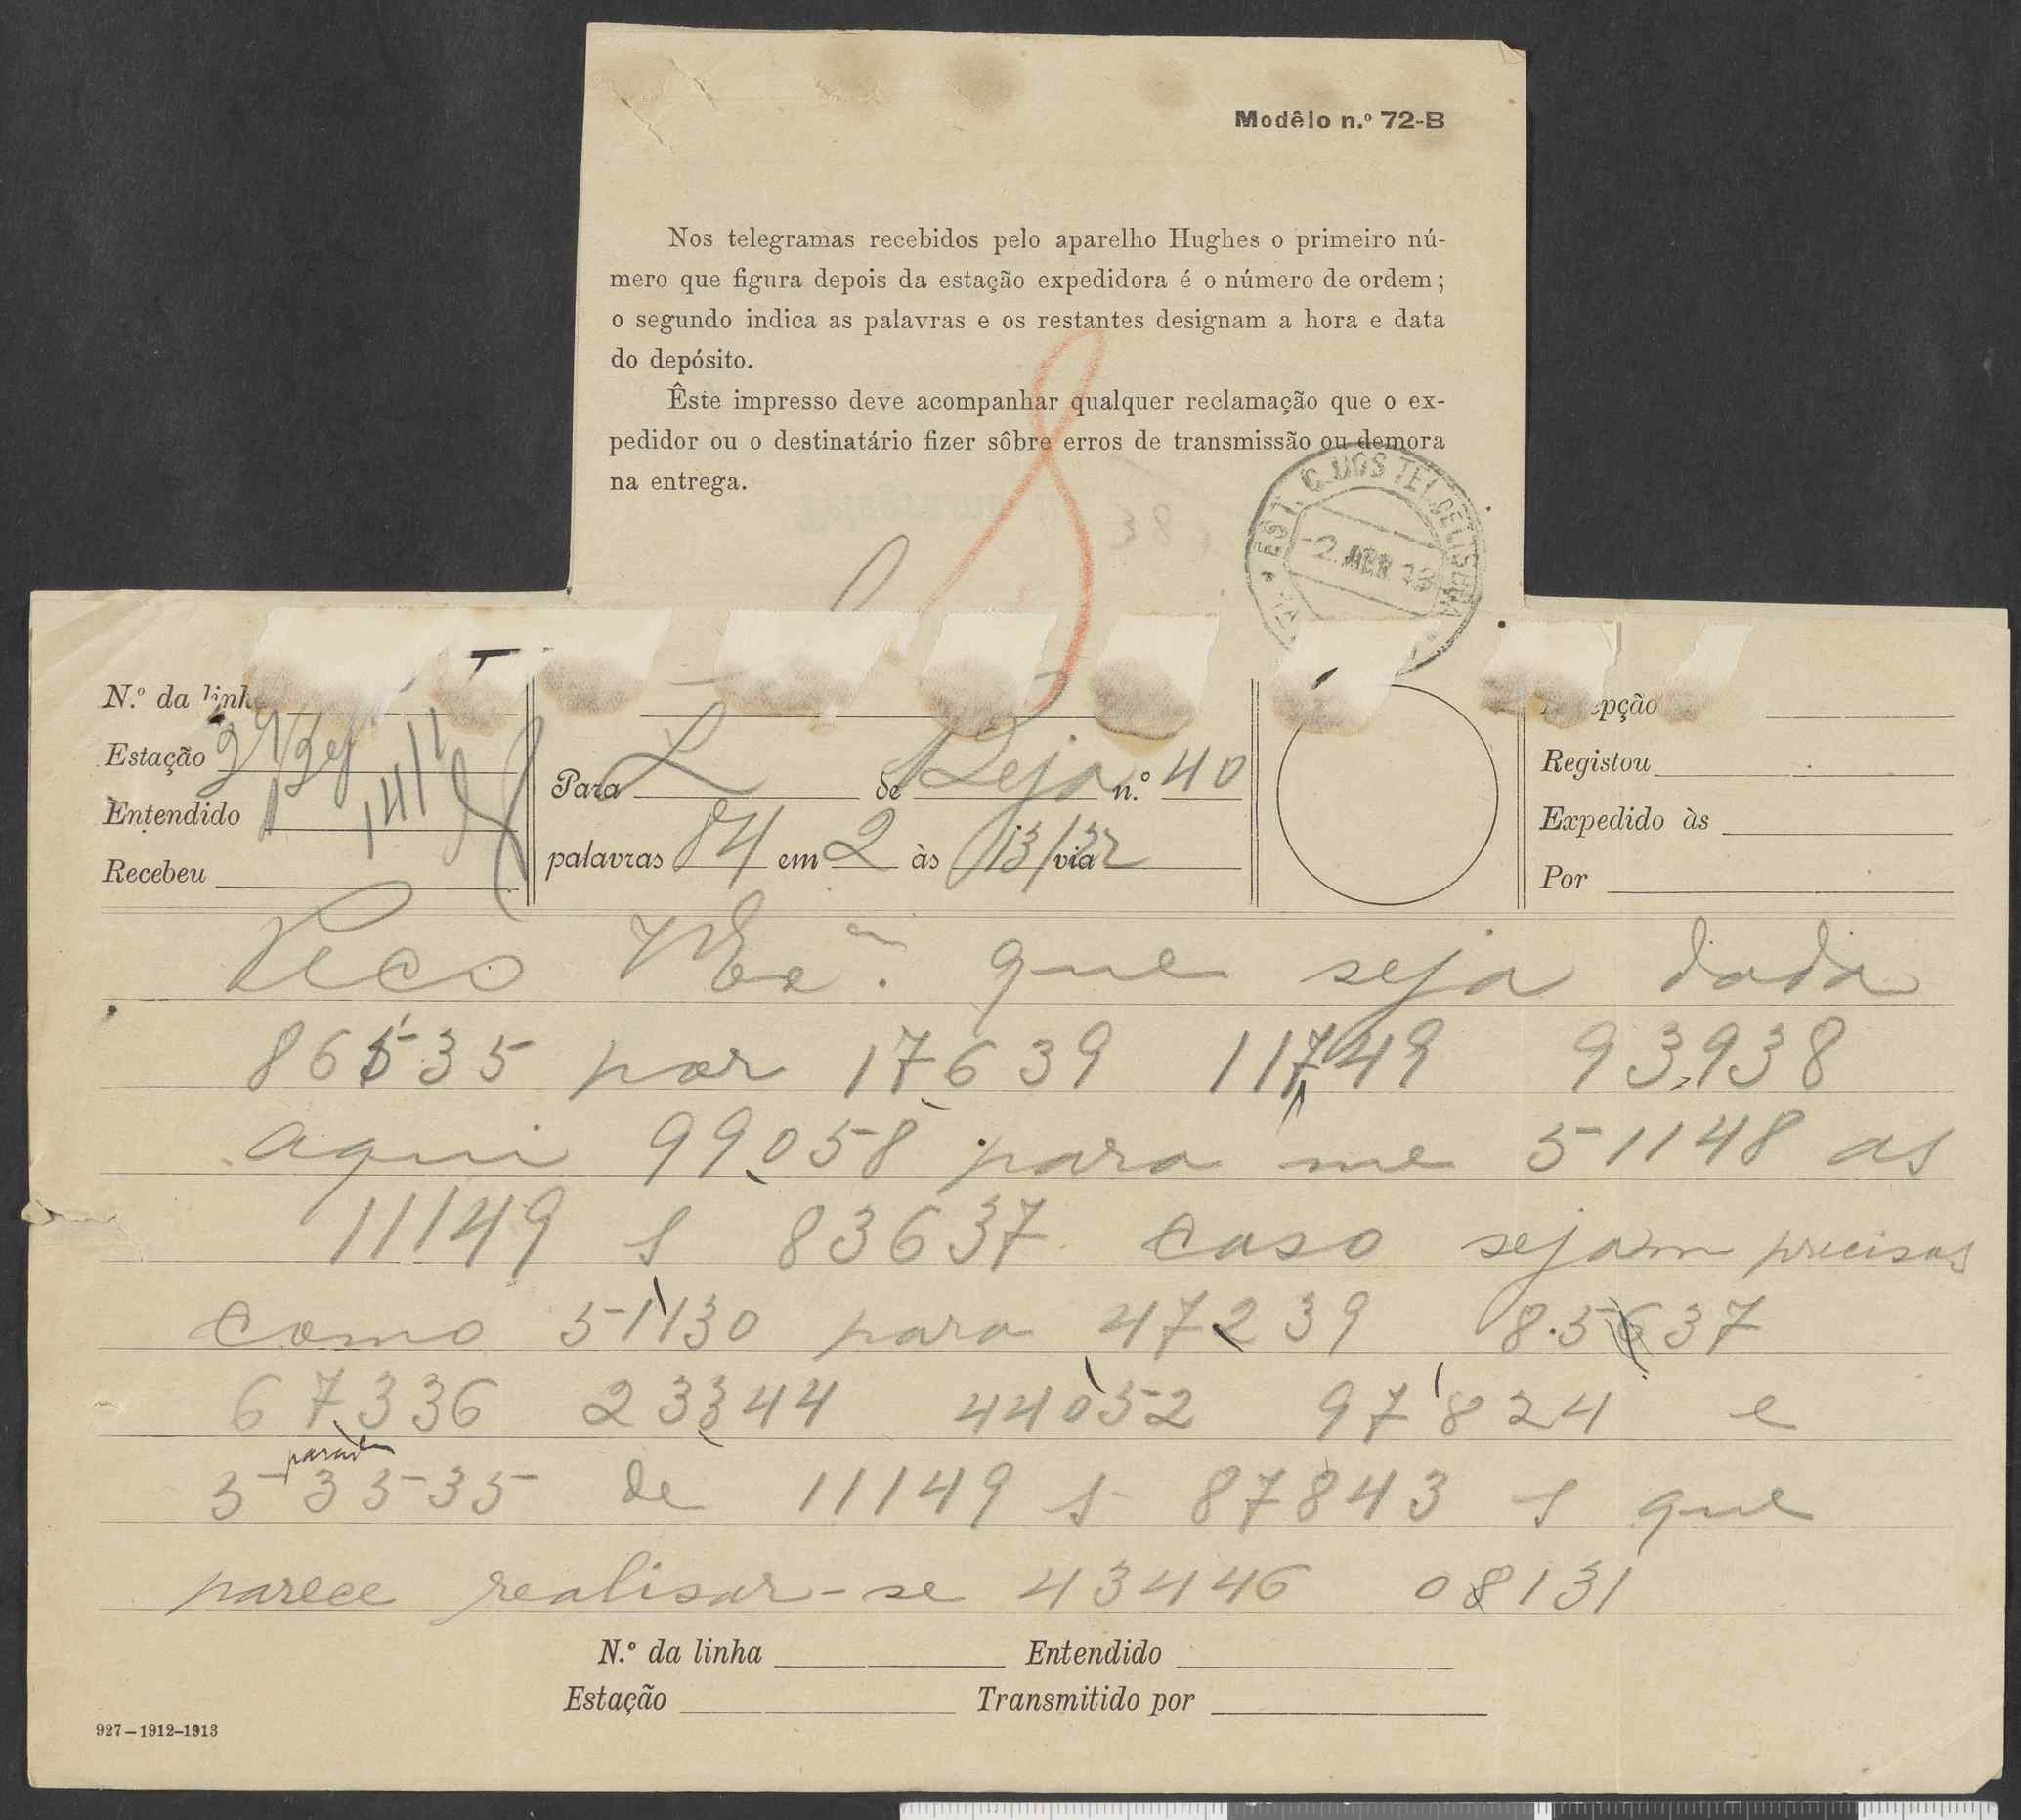 Modêlo n.º 72-B
Nos telegramas recebidos pelo aparelho Hughes o primeiro nú-
mero que figura depois da estação expedidora é o número de ordem;
o segundo indica as palavras e os restantes designam a hora e data
do depósito.
Êste impresso deve acompanhar qualquer reclamação que o ex-
pedidor ou o destinatário fizer sôbre erros de transmissão ou demora
na entrega.
EST. C. DOS TEL. DE LISBOA
-2. ABR. 13
N.º da linha
Estação
Entendido
Recebeu
Para L de Beja n.º 40
palavras 84 em 2 às 13/32 via
Registou
Expedido às
Por
Peco V Exª. que seja dada
86535 por 17639 11749 93938
aqui 99058 para me 51148 as
11149 s 83637 caso sejam precisas
como 51130 para 47239 85637
67336 23344 44052 97824 e
53535 de 11149 s 87843 s que
parece realisar-se 43446 08131
N.º da linha Entendido
Estação Transmitido por
927-1912-1913